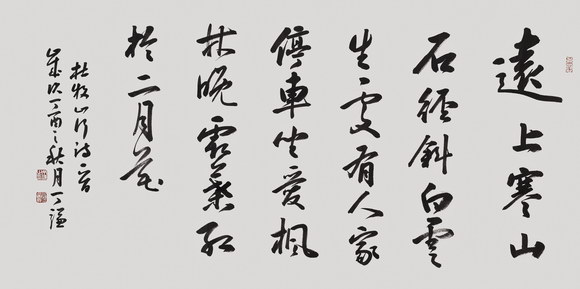 遠上寒山
石徑斜白雲
生處有人家
停車坐愛楓
林晚霜葉紅
於二月花
杜牧山行詩一首
歲次丁酉之秋月丁